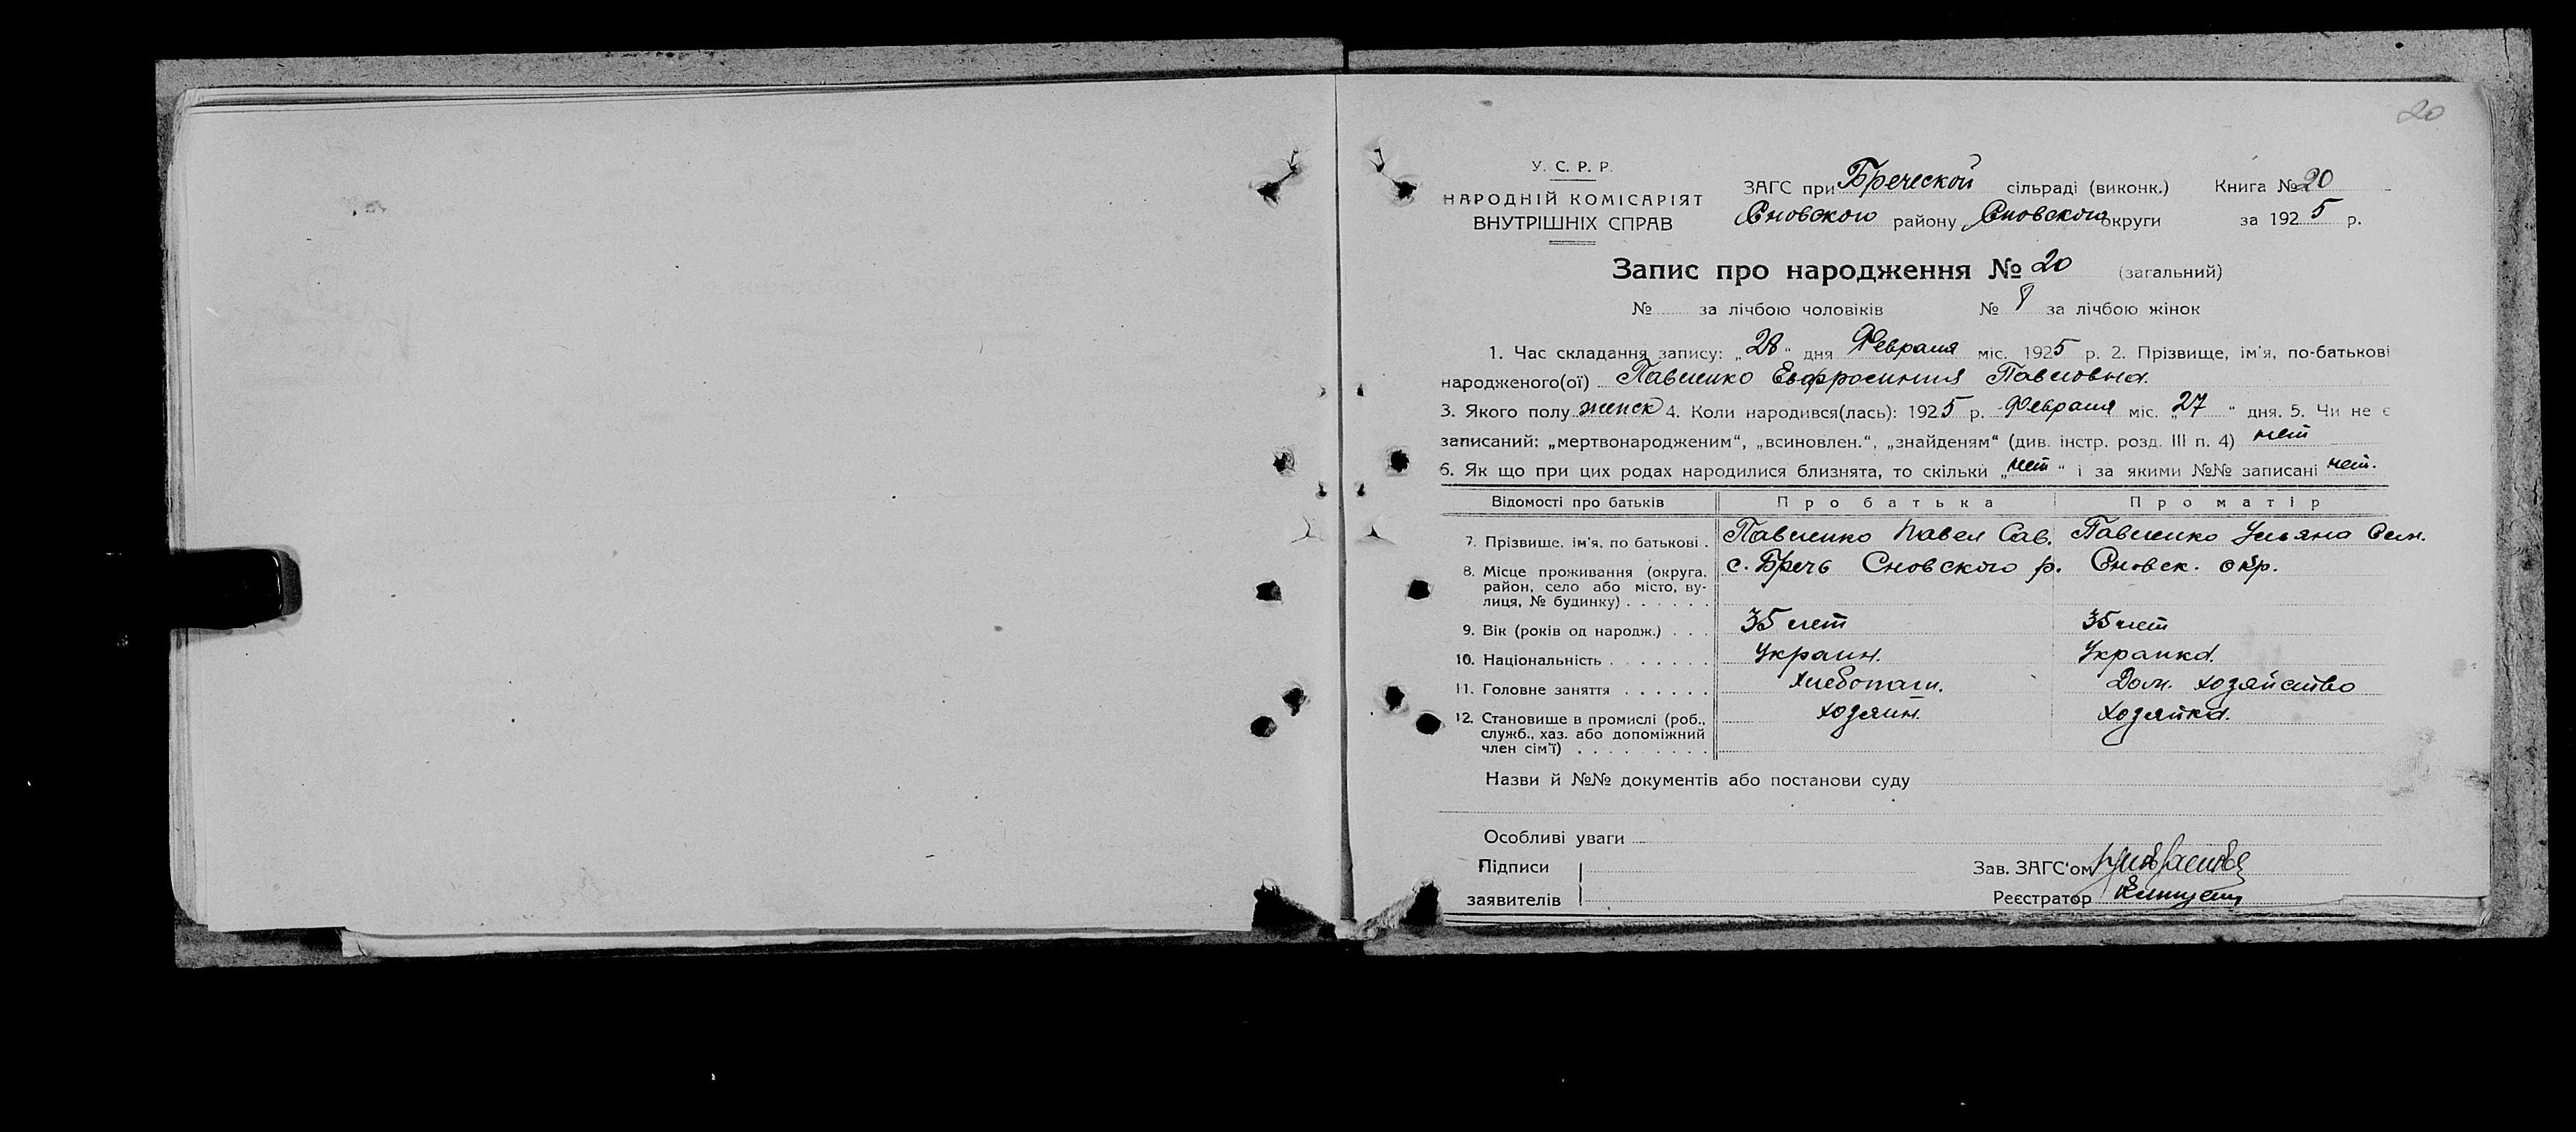 20
У. С. Р. Р.
НАРОДНІЙ КОМІСАРІЯТ
ВНУТРІШНІХ СПРАВ
ЗАГС при Бреческой сільраді (виконк.) Книга № 20
Сновского району Сновского округи за 1925 р.
Запис про народження № 20 (загальний)
№ за лічбою чоловіків № 9 за лічбою жінок
1. Час складання запису: „28“ дня Февраля міс. 1925 р. 2. Прізвище, ім'я, по-батькові
народженого(ої) Павленко Евфросиния Павловна.
3. Якого полу женск 4. Коли народився(лась): 1925 р. Февраля міс. „27“ дня. 5. Чи не є
записаний: „мертвонародженим“, „всиновлен.“, „знайденям“ (див. інстр. розд. III п. 4) нет
6. Як що при цих родах народилися близнята, то скільки „нет“ і за якими №№ записані нет.
Відомості про батьків Про батька Про матір
7. Прізвище, ім'я, по батькові . Павленко Павел Сав. Павленко Ульяна Сем.
8. Місце проживання (округа, с. Бречь Сновского р. Сновск. окр.
район, село або місто, ву-
лиця, № будинку) . . . . . .
9. Вік (років од народж.) . . . 35 лет 35 лет
10. Національність . . . . . . . Украин. Украинка.
11. Головне заняття . . . . . . Хлебопаш. Дом. хозяйство
12. Становище в промислі (роб., хозяин. Хозяйка.
служб., хаз. або допоміжний
член сім'ї) . . . . . . . . .
Назви й №№ документів або постанови суду
Особливі уваги
Підписи Зав. ЗАГС'ом
заявителів Реєстратор